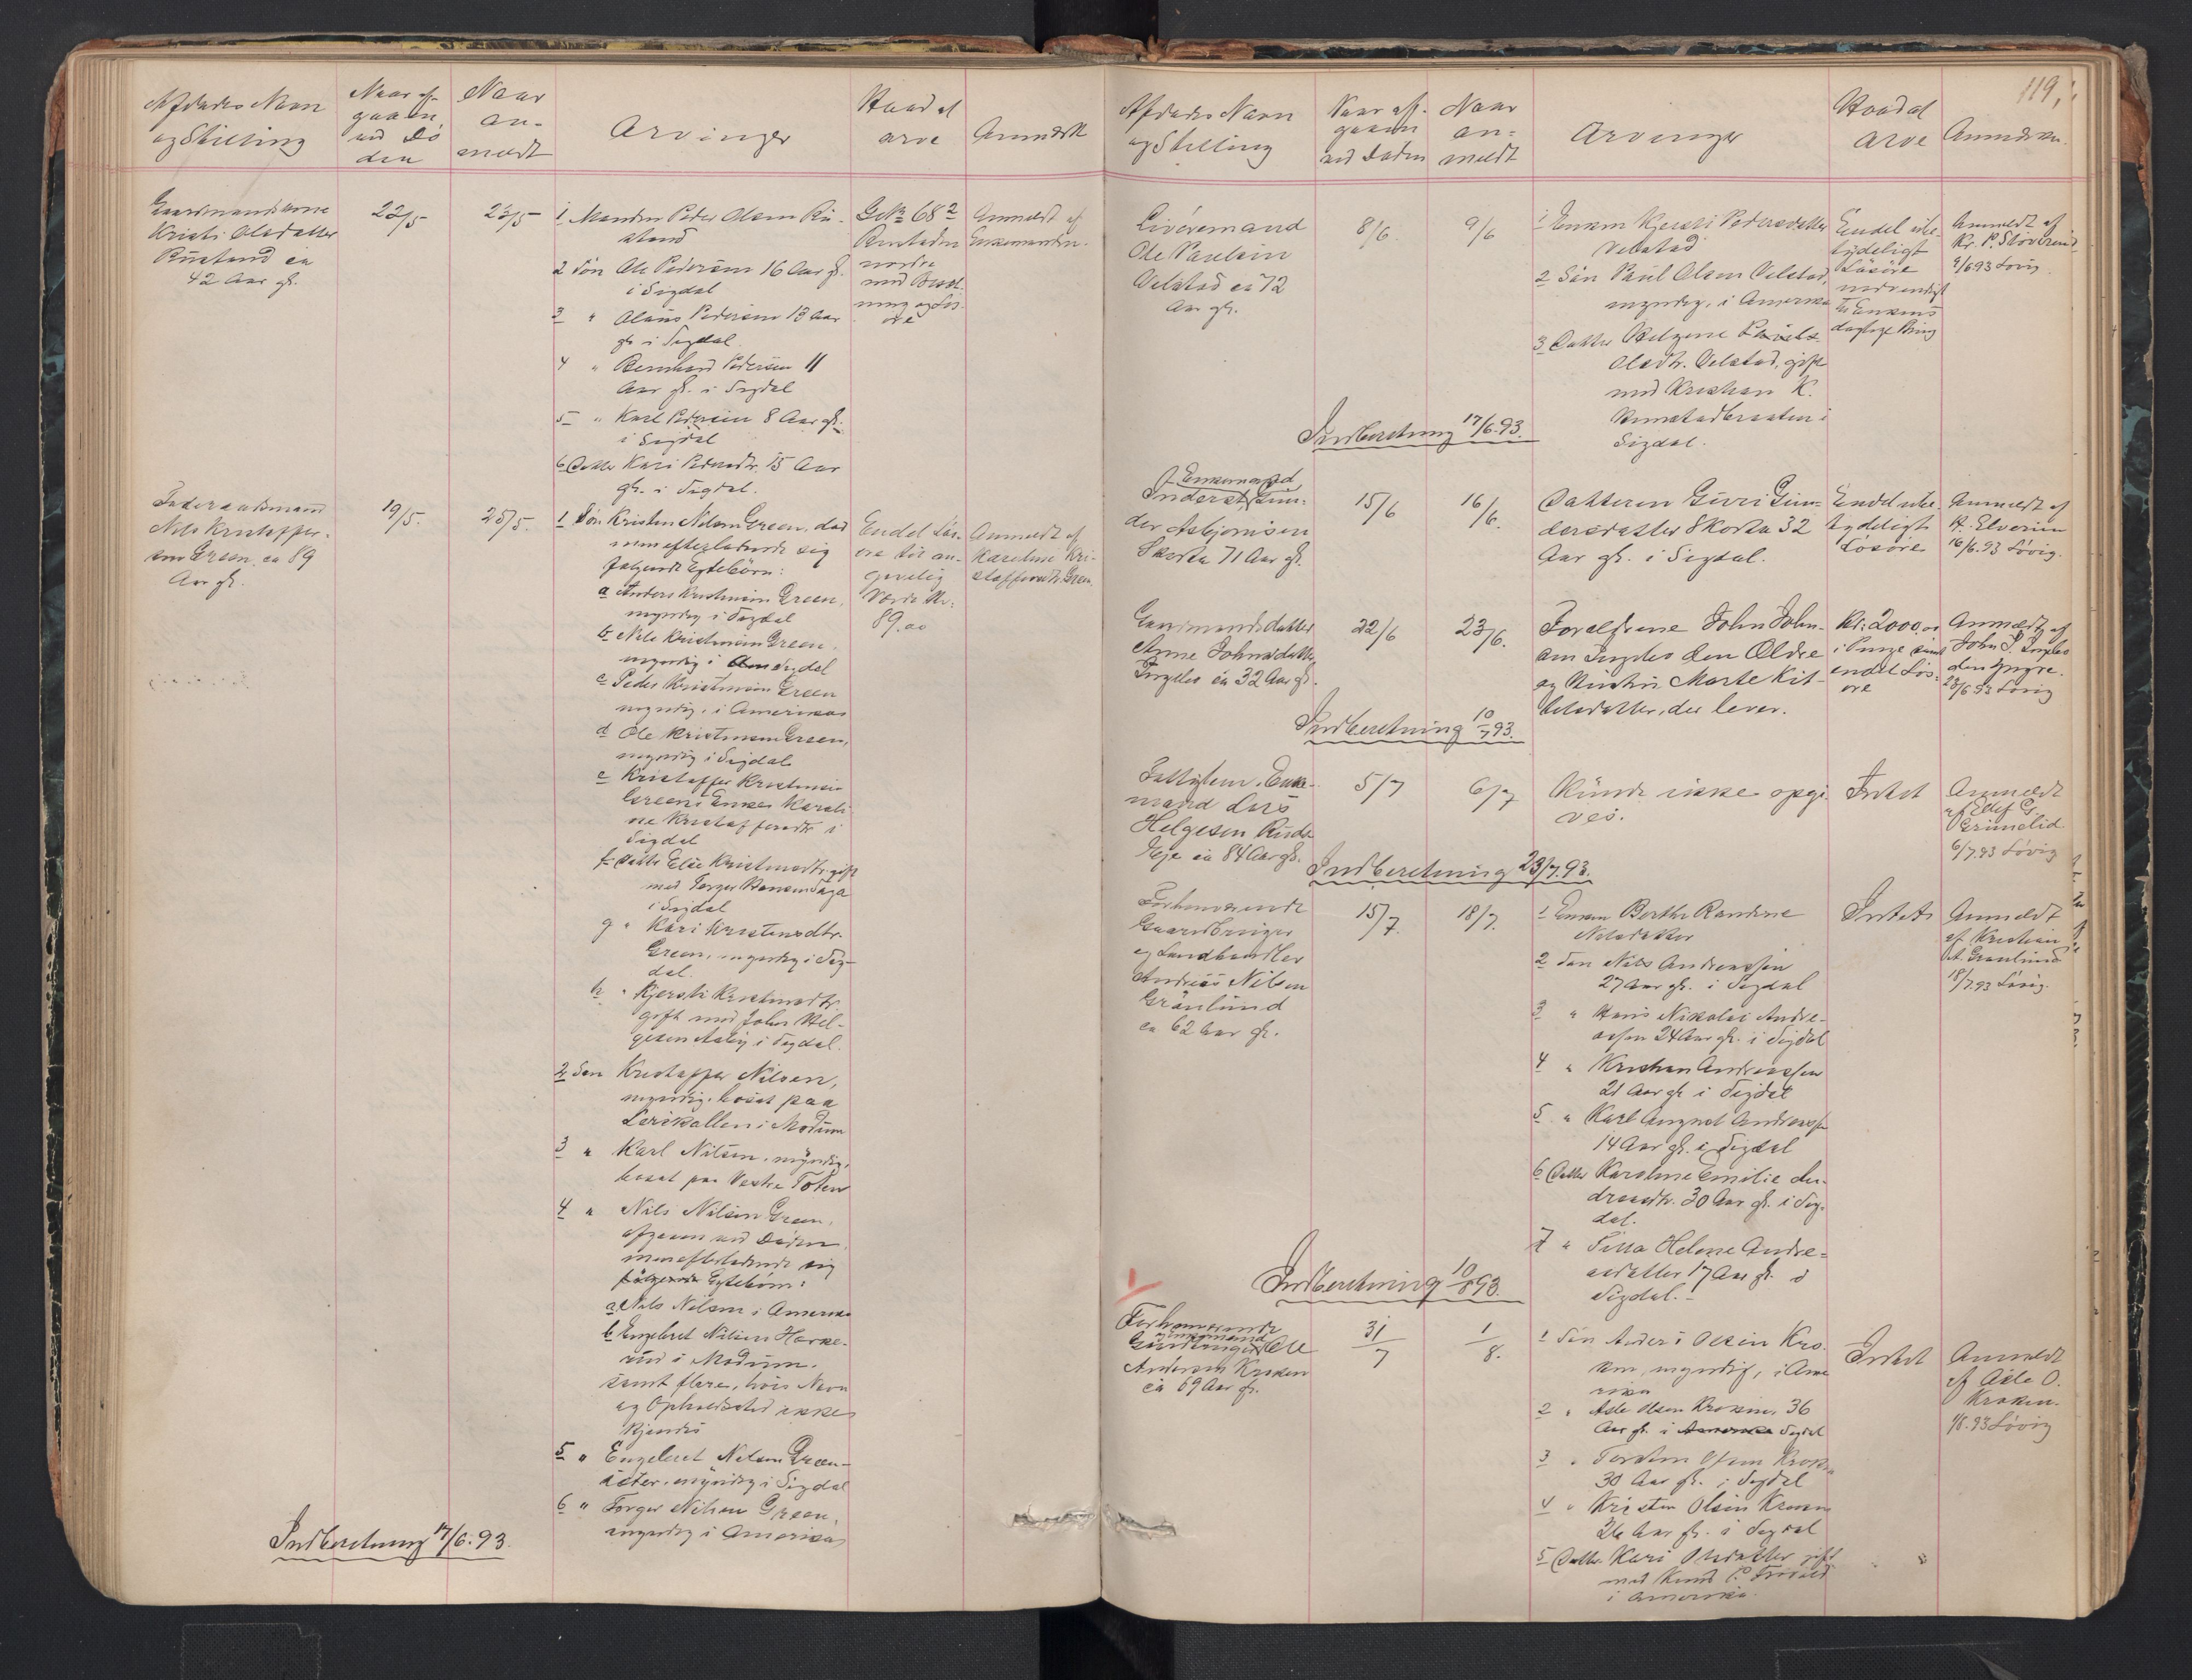 Afdødes Navn
og Stilling
Naar af-
gaaen
ved Dø
den
Naar
an-
meldt
Arvinger
Hvad at
arve
Anmeldt
Gaardmandskone
Kristi Olsdatter
Rustand ca
42 Aar gl.
22/5
23/5
1 Manden Peder Olsen Ru-
stand
2 Søn Ole Pedersen 16 Aar gl.
i Sigdal
3 " Olaus Pedersen 13 Aar
gl. i Sigdal
4 " Bernhard Pedersen 11
Aar gl. i Sigdal
5 " Karl Pedersen 8 Aar gl.
i Sigdal
6 Datter Kari Pedersdtr. 15 Aar
gl. i Sigdal.
G.No 68 2
nordre
med Besæt-
ning og Løs-
øre
Anmeldt af
Enkemanden.
Nils Kristoffer-
sen Green ca 89
Aar gl.
19/5.
25/5.
1 Søn Kristen Nilsen Green, død
men efterladende sig
følgende Egtebørn:
a Anders Kristensen Green,
myndig i Sigdal
b Nils Kristensen Green,
myndig i Sigdal
c Peder Kristensen Green
myndig, i Amerika
d Ole Kristensen Green,
myndig i Sigdal
e Kristoffer Kristensen
Greens Enke Karoli-
ne Kristoffersdtr i
Sigdal
f Datter Elie Kristensdtr, gift
med Torger Hansen Saga
i Sigdal
g " Kari Kristensdtr.
Green, myndig i Sig-
dal.
h " Kjersti Kristensdtr.
gift med John Hel-
gesen Aasby i Sigdal.
2 Søn Kristoffer Nilsen,
myndig, bosat paa
Lerskallen i Modum
3 " Karl Nilsen, myndig,
bosat paa Vestre Toten
4 " Nils Nilsen Green,
afgaaen ved Døden
men efterladende sig
følgende Egtebørn:
a Nils Nilsen i Amerika
b Engebret Nilsen Hovde-
rud i Modum.
samt flere, hvis Navn
og Opholdssted ikke
kjendes
5 " Engebret Nilsen Green-
eier, myndig i Sigdal
6 " Torger Nilsen Green,
myndig i Amerika
Endel Løs-
øre til an-
givelig
Værdi Kr.
89.00
Anmeldt af
Karoline Kri-
stoffersdtr. Green
Indberetning 17/6.93.
119.
Afdødes Navn
og Stilling
Naar af-
gaaen
ved Døden
Naar
an-
meldt
Arvinger
Hvad at
arve
Anmærkn.
Livøremand
Ole Paulsen
Velstad ca 72
Aar gl.
8/6.
9/6
1 Enken Kjersti Pedersdatter
Velstad
2 Søn Paul Olsen Velstad,
myndig, i Amerika
3 Datter Olsdtr. Velstad, gift
med Kristian K.
i
Sigdal.
Endel ube-
tydeligt
Løsøre
nødvendigt
til Enkens
daglige Brug
Anmeldt af
Kr. P.
9/6 93 Løvig
Indberetning 17/6.93.
Enkemand
Inderst, Gun-
der Asbjørnsen
Skorta 71 Aar gl.
15/6
16/6.
Datteren Guri Gun-
dersdatter Skorta 32
Aar gl. i Sigdal.
Endel ube-
tydeligt
Løsøre
Anmeldt af
16/6.93 Løvig.
Gaardmandsdatter
Anne Johnsdatter
Inglet ca 32 Aar gl.
22/6
23/6.
Forældrene John John-
sen Inglet den Ældre
og Hustru Marte Kit-
telsdatter, der lever.
Kr: 2000.00
i Penge samt
endel Løs-
øre
Anmeldt af
John J. Inglet
den yngre.
23/6 93 Løvig
Indberetning 10/7 93.
Fattiglem, Enke-
mand Lars
Helgesen Ruds-
eje ca 84 Aar gl.
5/7
6/7
Kunde ikke opgi-
ves.
Intet
Anmeldt
af Elef G.
Grimelid.
6/7.93 Løvig
Indberetning 23/7.93.
Forhenværende
Gaardbruger
og Landhandler
Andreas Nilsen
Grønlund
ca 62 Aar gl.
15/7.
18/7.
1 Enken Berthe Randine
Nilsdatter
2 Søn Nils Andreassen
27 Aar gl. i Sigdal
3 " Hans Nikolai Andre-
assen 24 Aar gl. i Sigdal
4 " Kristian Andreassen
21 Aar gl. i Sigdal
5 " Karl August Andreassen
14 Aar gl. i Sigdal
6 Datter Karoline Emilie An-
dreasdtr. 30 Aar gl. i Sig-
dal.
7 " Helene Andre-
asdatter 17 Aar gl. i
Sigdal.
Intet
Anmeldt
af Kristian
A. Grønlund
18/7.93 Løvig.
Indberetning 10/8 93.
Forhenværende
Enkemand
Gaardbruger Ole
Andersen Kroken
ca 69 Aar gl.
31/7
1/8.
1 Søn Anders Olsen Kro-
ken, myndig, i Ame
rika
2 " Asle Olsen Kroken, 36
Aar gl. i Amerika Sigdal
3 " Torsten Olsen Kroken
30 Aar gl. i Sigdal
4 " Kristen Olsen Kroken
26 Aar gl. i Sigdal
5 Datter Kari Olsdatter gift
med Knud P.
i Amerika.
Intet
Anmeldt
af Asle O.
Kroken.
1/8.93 Løvig